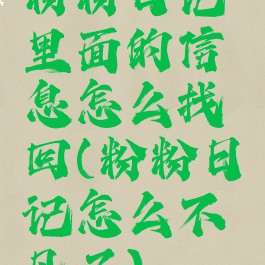 粉粉日记
里面的信
息怎么找
回(粉粉日
记怎么不
见了)